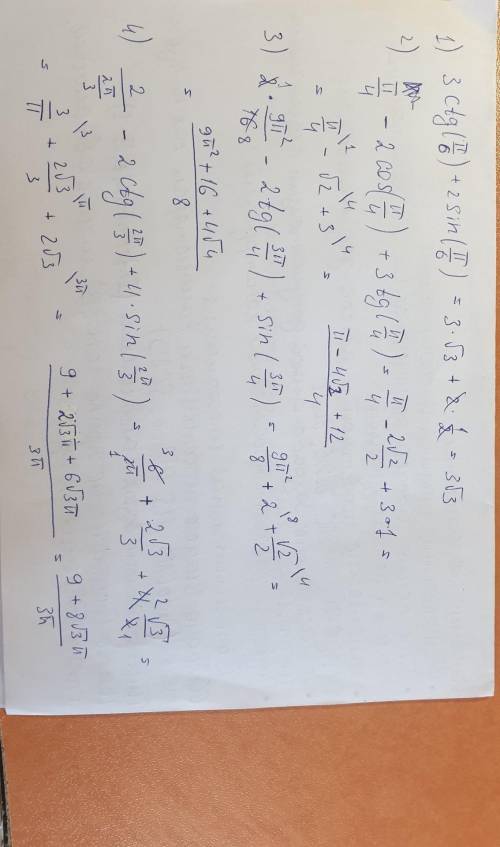 1) 3 ctg(π/6) + 2 sin(π/6) = 3·√3 + 2·1/2 = 3√3
2) π/4 - 2 cos(π/4) + 3 tg(π/4) = π/4 - 2√2/2 + 3·1 =
= π/4 \1 - √2 \4 + 3 \4 = (π - 4√2 + 12)/4
3) 2 1 · 9π²/16 8 - 2 tg(3π/4) + sin(3π/4) = 9π²/8 + 2 \8 + √2/2 \4 =
= (9π² + 16 + 4√4)/8
4) 2/(2π/3) - 2 ctg(2π/3) + 4·sin(2π/3) = 6 3/2π 1 + 2√3/3 + 4 2 √3/2 1 =
= 3/π \3 + 2√3/3 \π + 2√3 \3π = (9 + 2√3π + 6√3π)/3π = (9 + 8√3π)/3π